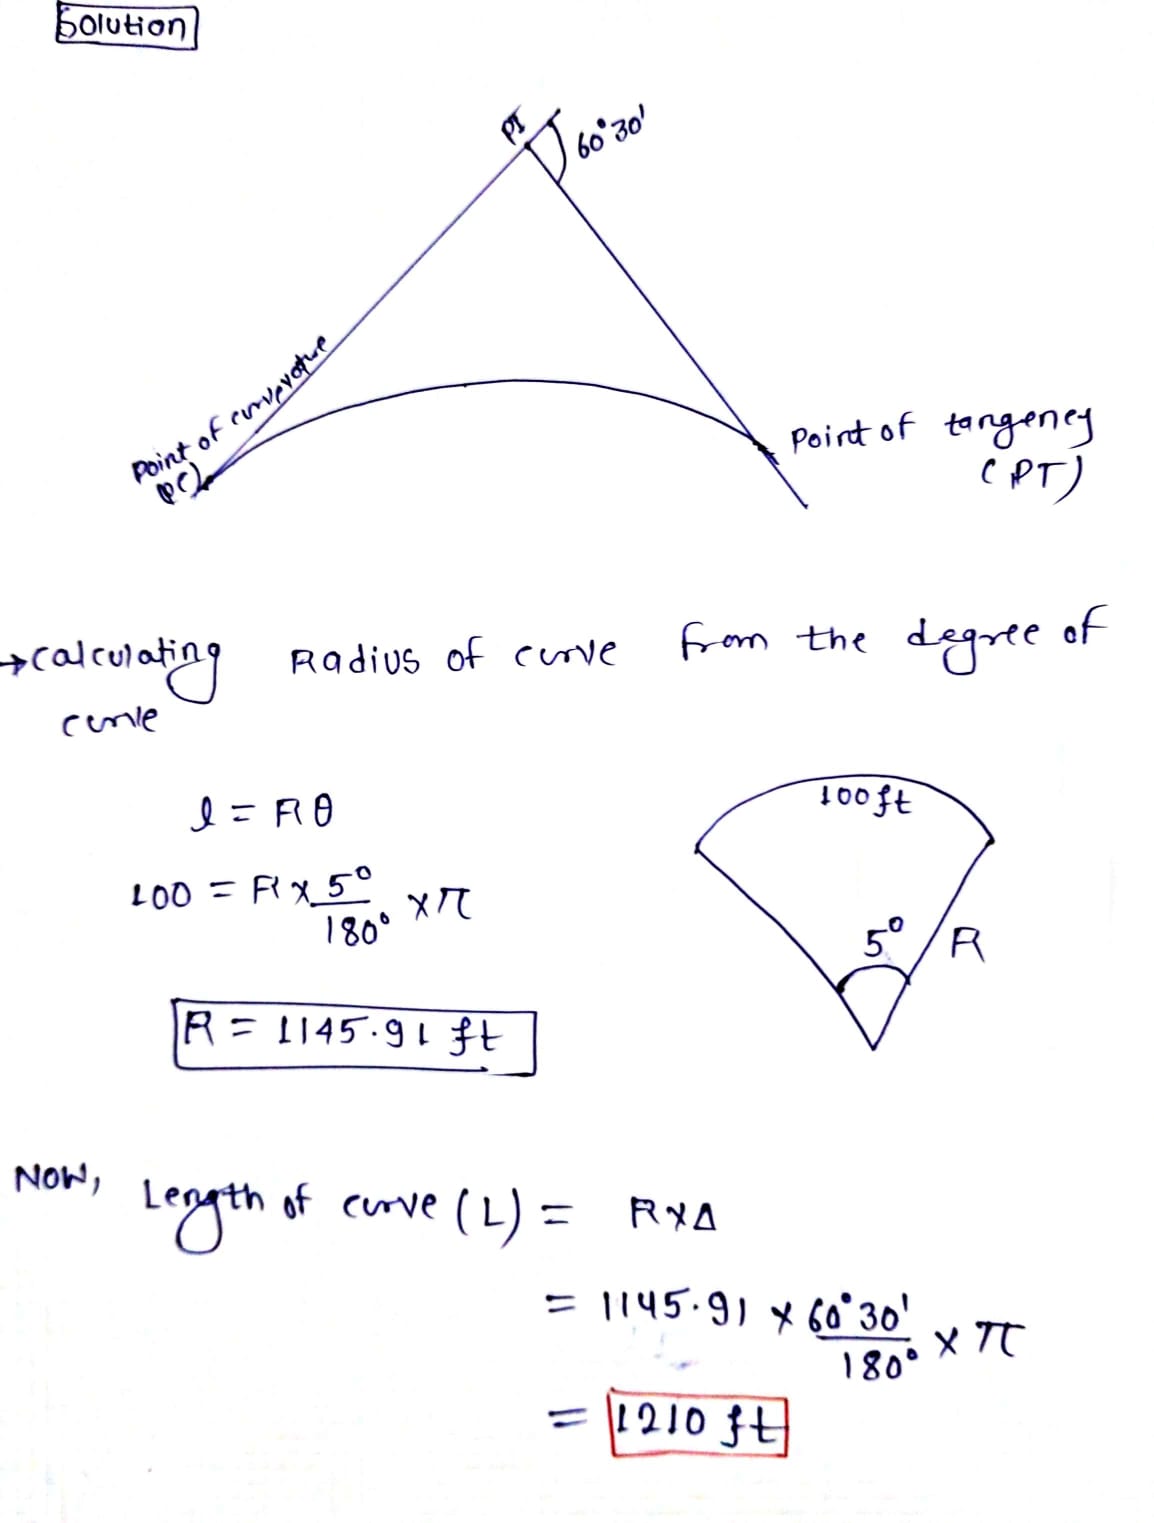 Solution
PI
60°30'
Point of curvevature
(PC)
Point of tangency
(PT)
→ calculating Radius of curve from the degree of
curve
l = Rθ
100 = R x 5°/180° x π
R = 1145.91 ft
100 ft
5°
R
NOW, Length of curve (L) = R x Δ
= 1145.91 x 60°30'/180° x π
= 1210 ft